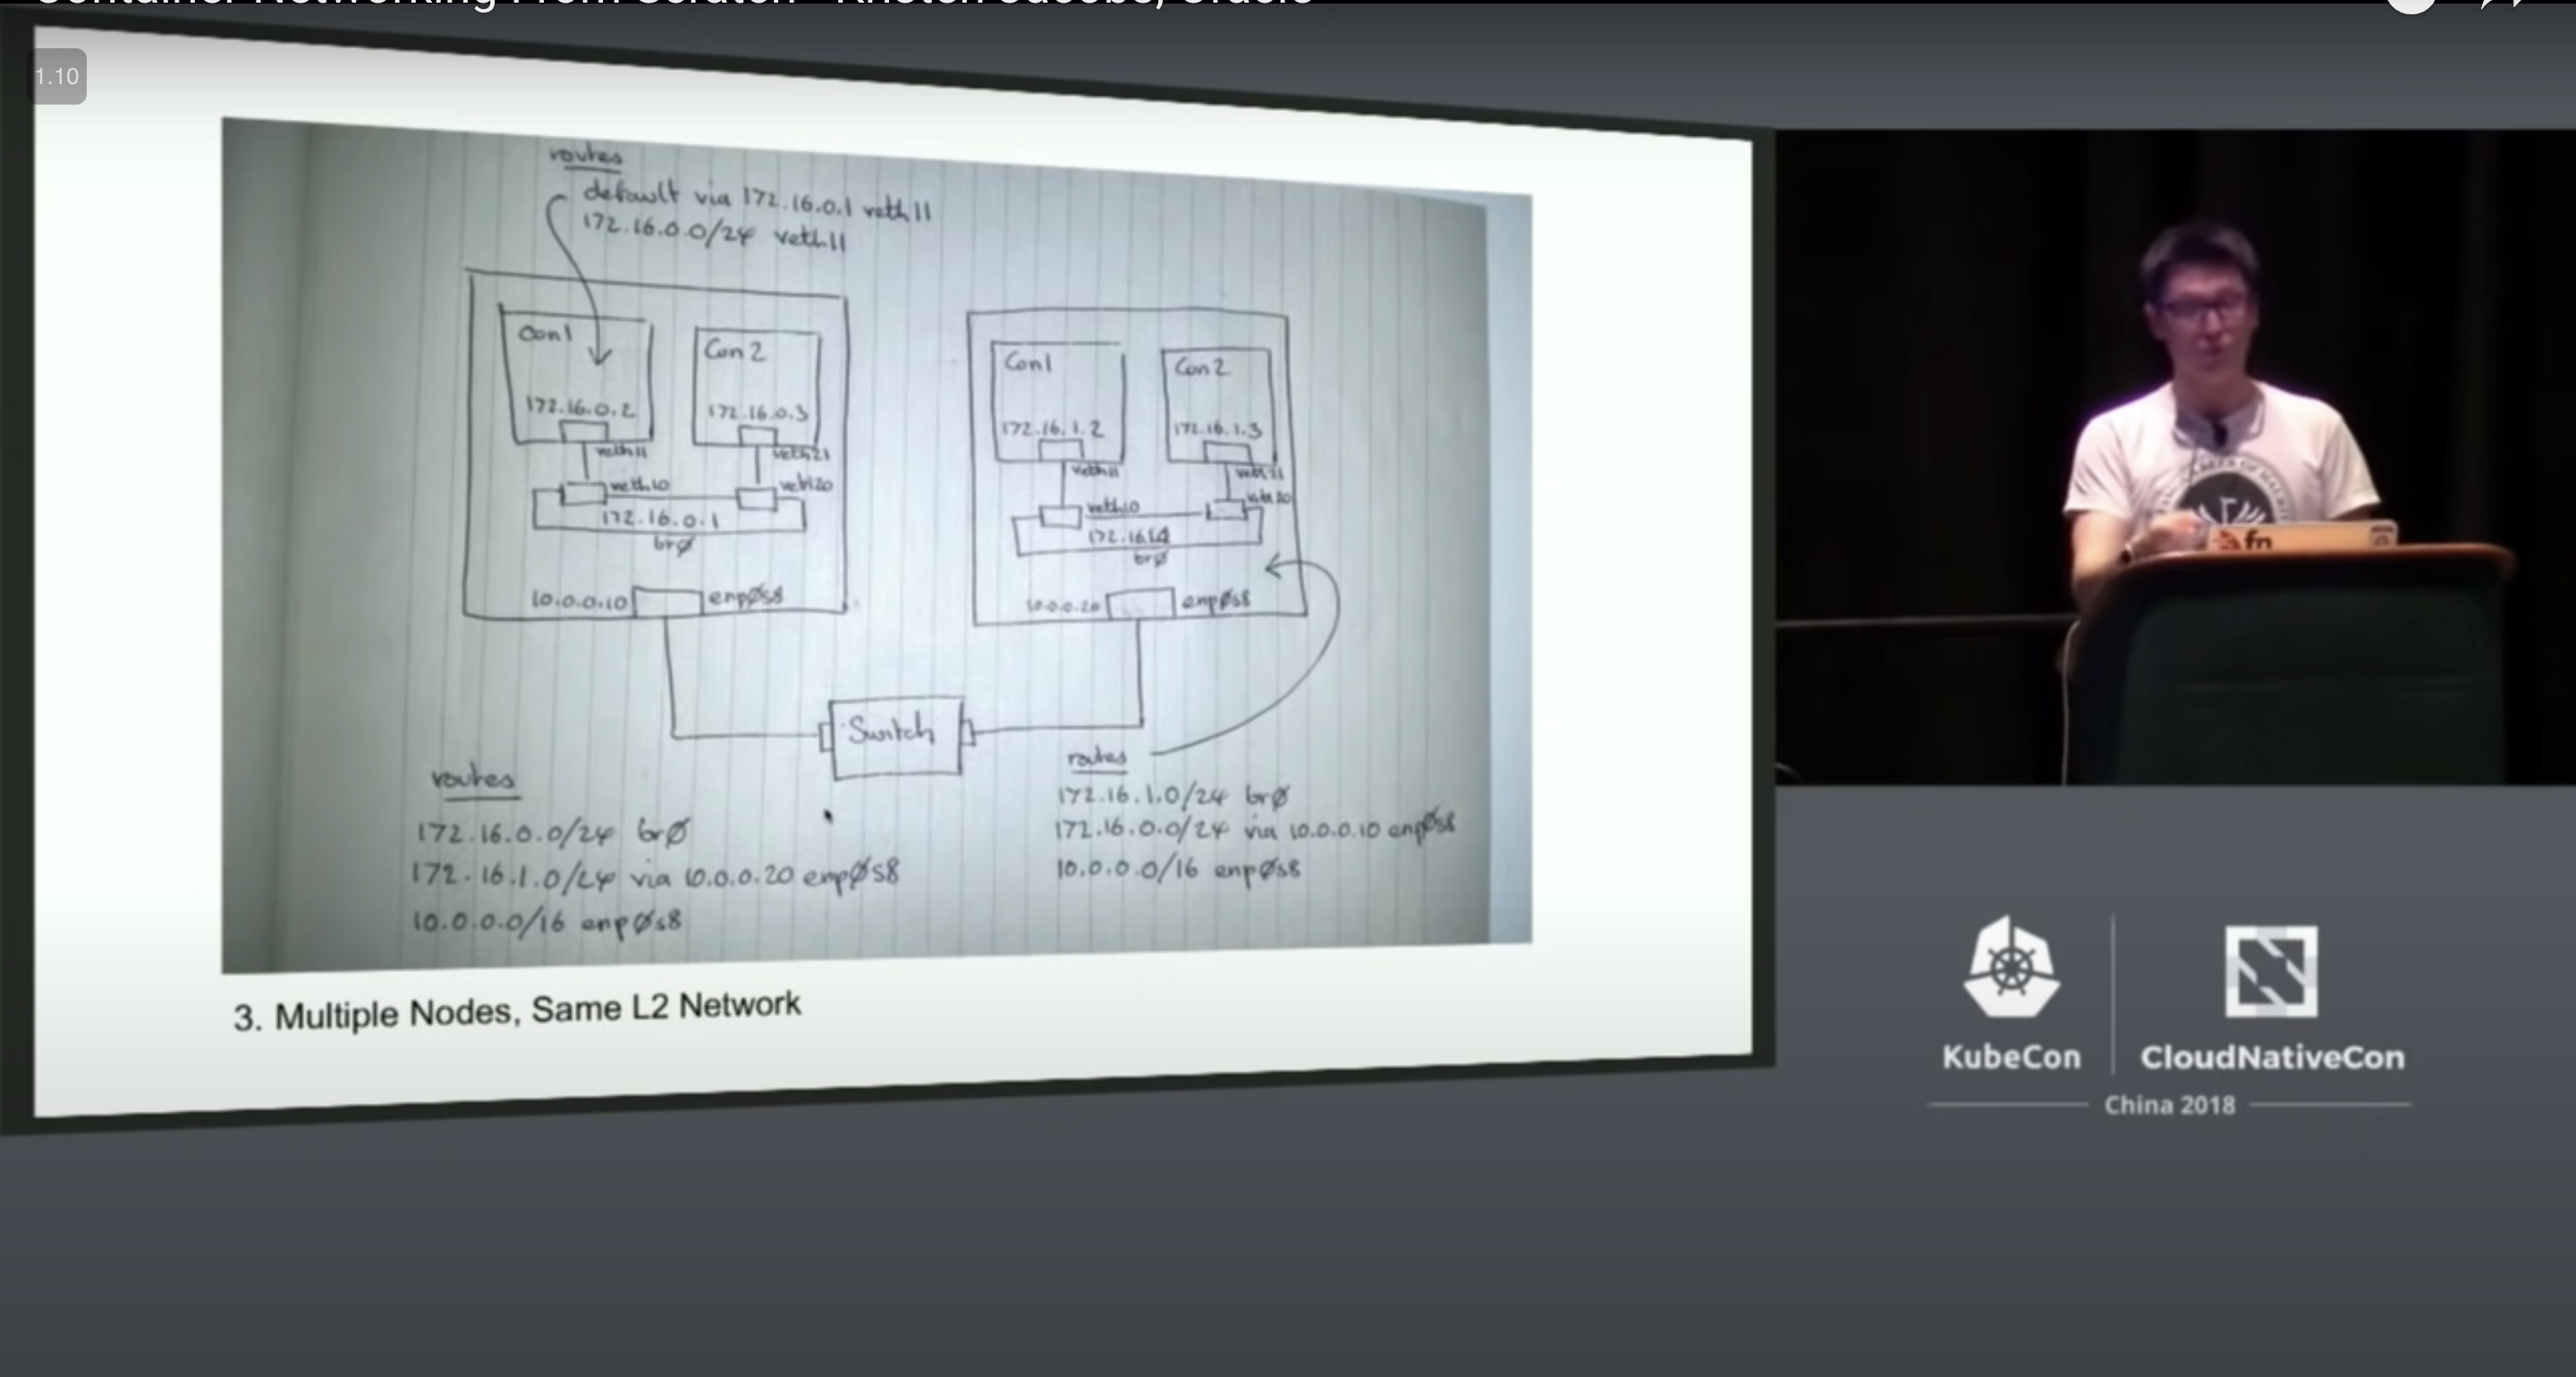 Container Networking From Scratch - Kristen Jacobs, Oracle
1.10
routes
default via 172.16.0.1 veth11
172.16.0.0/24 veth11
Con1
172.16.0.2
veth11
veth10
Con 2
172.16.0.3
veth21
veth20
172.16.0.1
brø
10.0.0.10
enpøs8
Con1
172.16.1.2
veth11
veth10
Con 2
172.16.1.3
veth21
veth20
brø
10.0.0.20
enpøs8
Switch
routes
172.16.0.0/24 brø
172.16.1.0/24 via 10.0.0.20 enpøs8
10.0.0.0/16 enpøs8
routes
172.16.1.0/24 brø
172.16.0.0/24 via 10.0.0.10 enpøs8
10.0.0.0/16 enpøs8
3. Multiple Nodes, Same L2 Network
fn
KubeCon
CloudNativeCon
China 2018